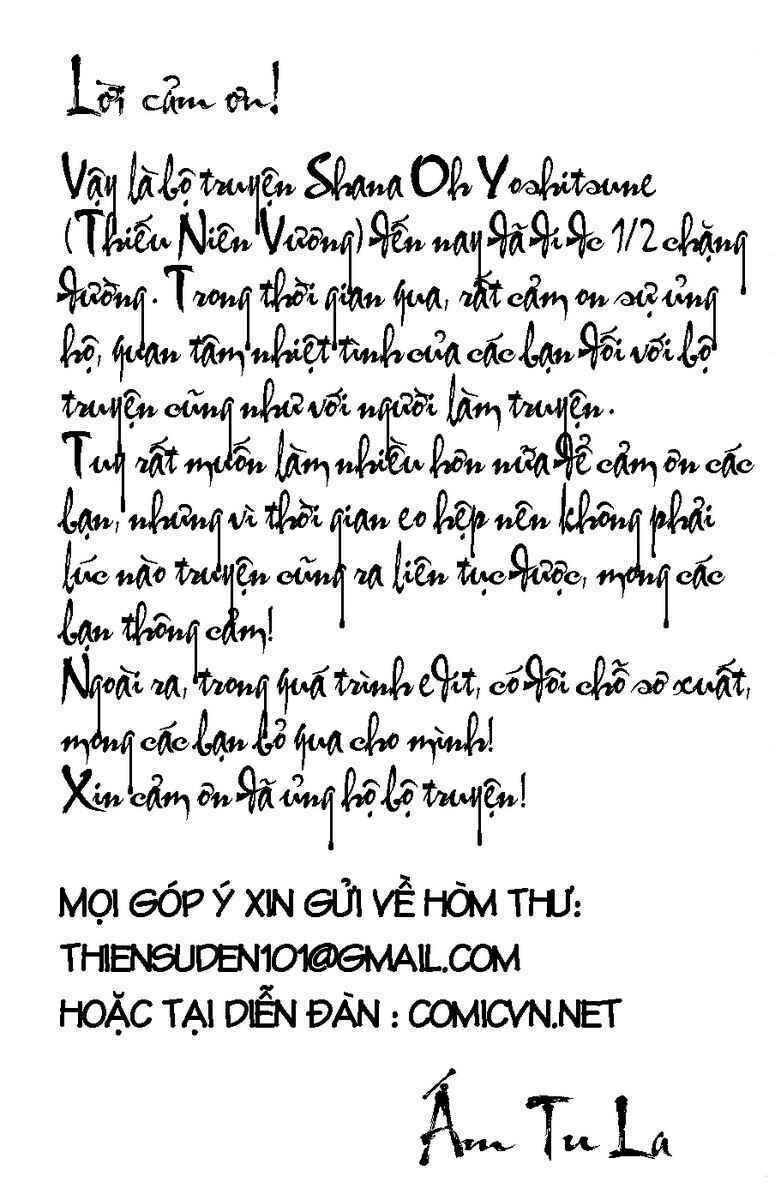 Lời cảm ơn!
Vậy là bộ truyện Shana Oh Yoshitsune
(Thiếu Niên Vương) đến nay đã đi đc 1/2 chặng
đường. Trong thời gian qua, rất cảm ơn sự ủng
hộ, quan tâm nhiệt tình của các bạn đối với bộ
truyện cũng như với người làm truyện.
Tuy rất muốn làm nhiều hơn nữa để cảm ơn các
bạn, nhưng vì thời gian eo hẹp nên không phải
lúc nào truyện cũng ra liên tục được, mong các
bạn thông cảm!
Ngoài ra, trong quá trình edit, có đôi chỗ sơ xuất,
mong các bạn bỏ qua cho mình!
Xin cảm ơn đã ủng hộ bộ truyện!
MỌI GÓP Ý XIN GỬI VỀ HÒM THƯ:
THIENSUDEN101@GMAIL.COM
HOẶC TẠI DIỄN ĐÀN : COMICVN.NET
Ấm Tu La